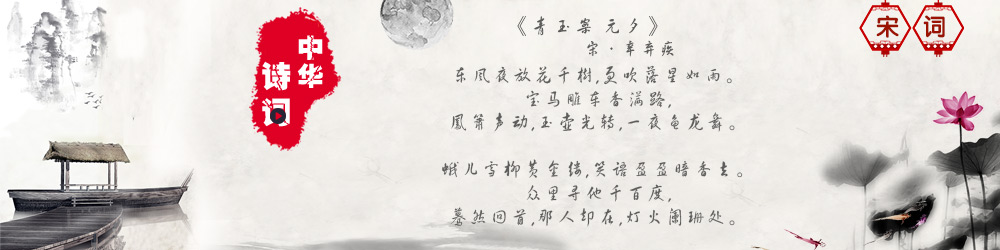 中华
诗词
《青玉案 元夕》
宋·辛弃疾
东风夜放花千樹,更吹落星如雨。
宝马雕车香满路,
凰箫声动,玉壶光转,一夜鱼龙舞。
蛾儿雪柳黄金缕,笑语盈盈暗香去。
众里寻他千百度,
蓦然回首,那人却在,灯火阑珊处。
宋词